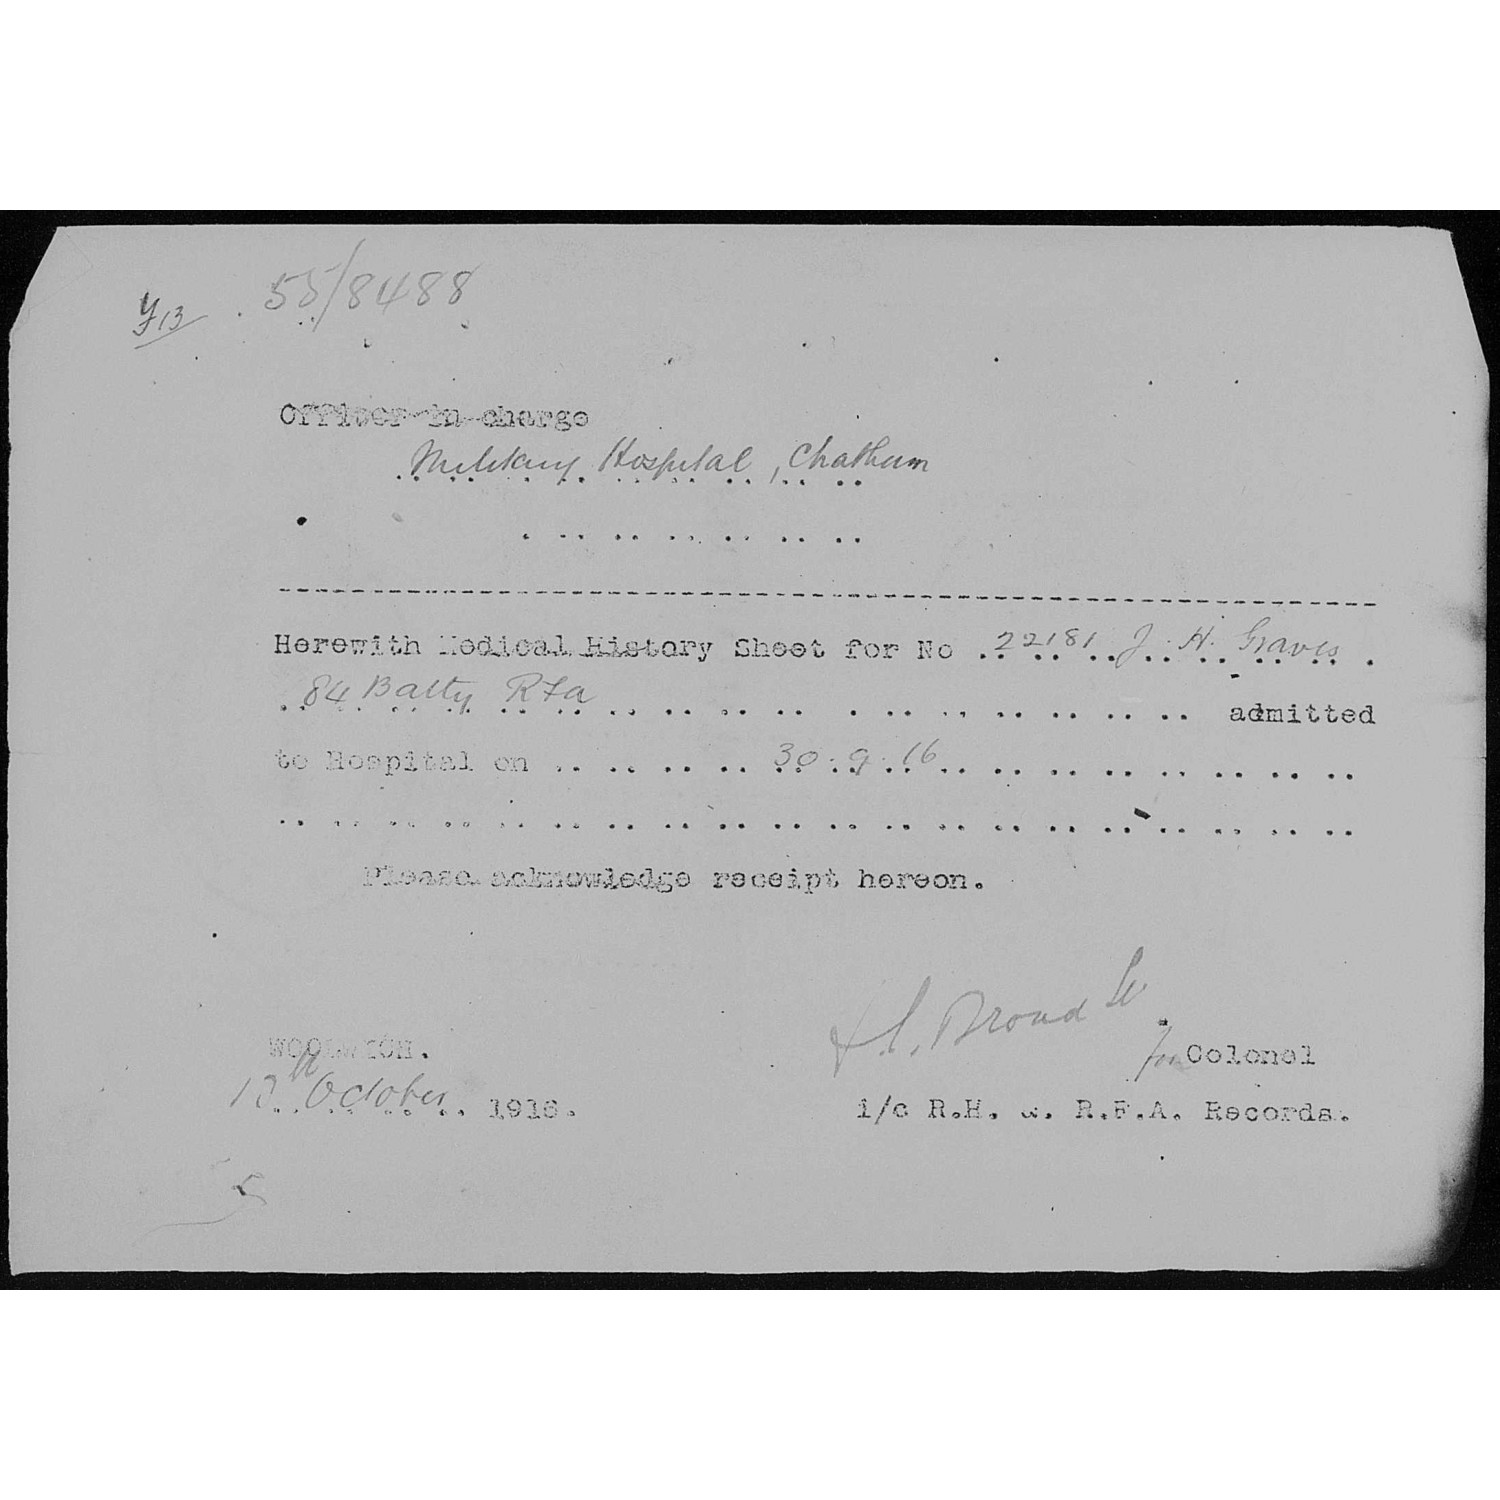 Y13 55/8488
Officer in charge
Military Hospital, Chatham
Herewith Medical History Sheet for No 22181 J. H. Graves.
84 Batty RFA admitted
to Hospital on 30.9.16
Please acknowledge receipt hereon.
Broad Lt
WOOLWICH. for Colonel
October 1916. i/c R.H. &. R.F.A. Records.